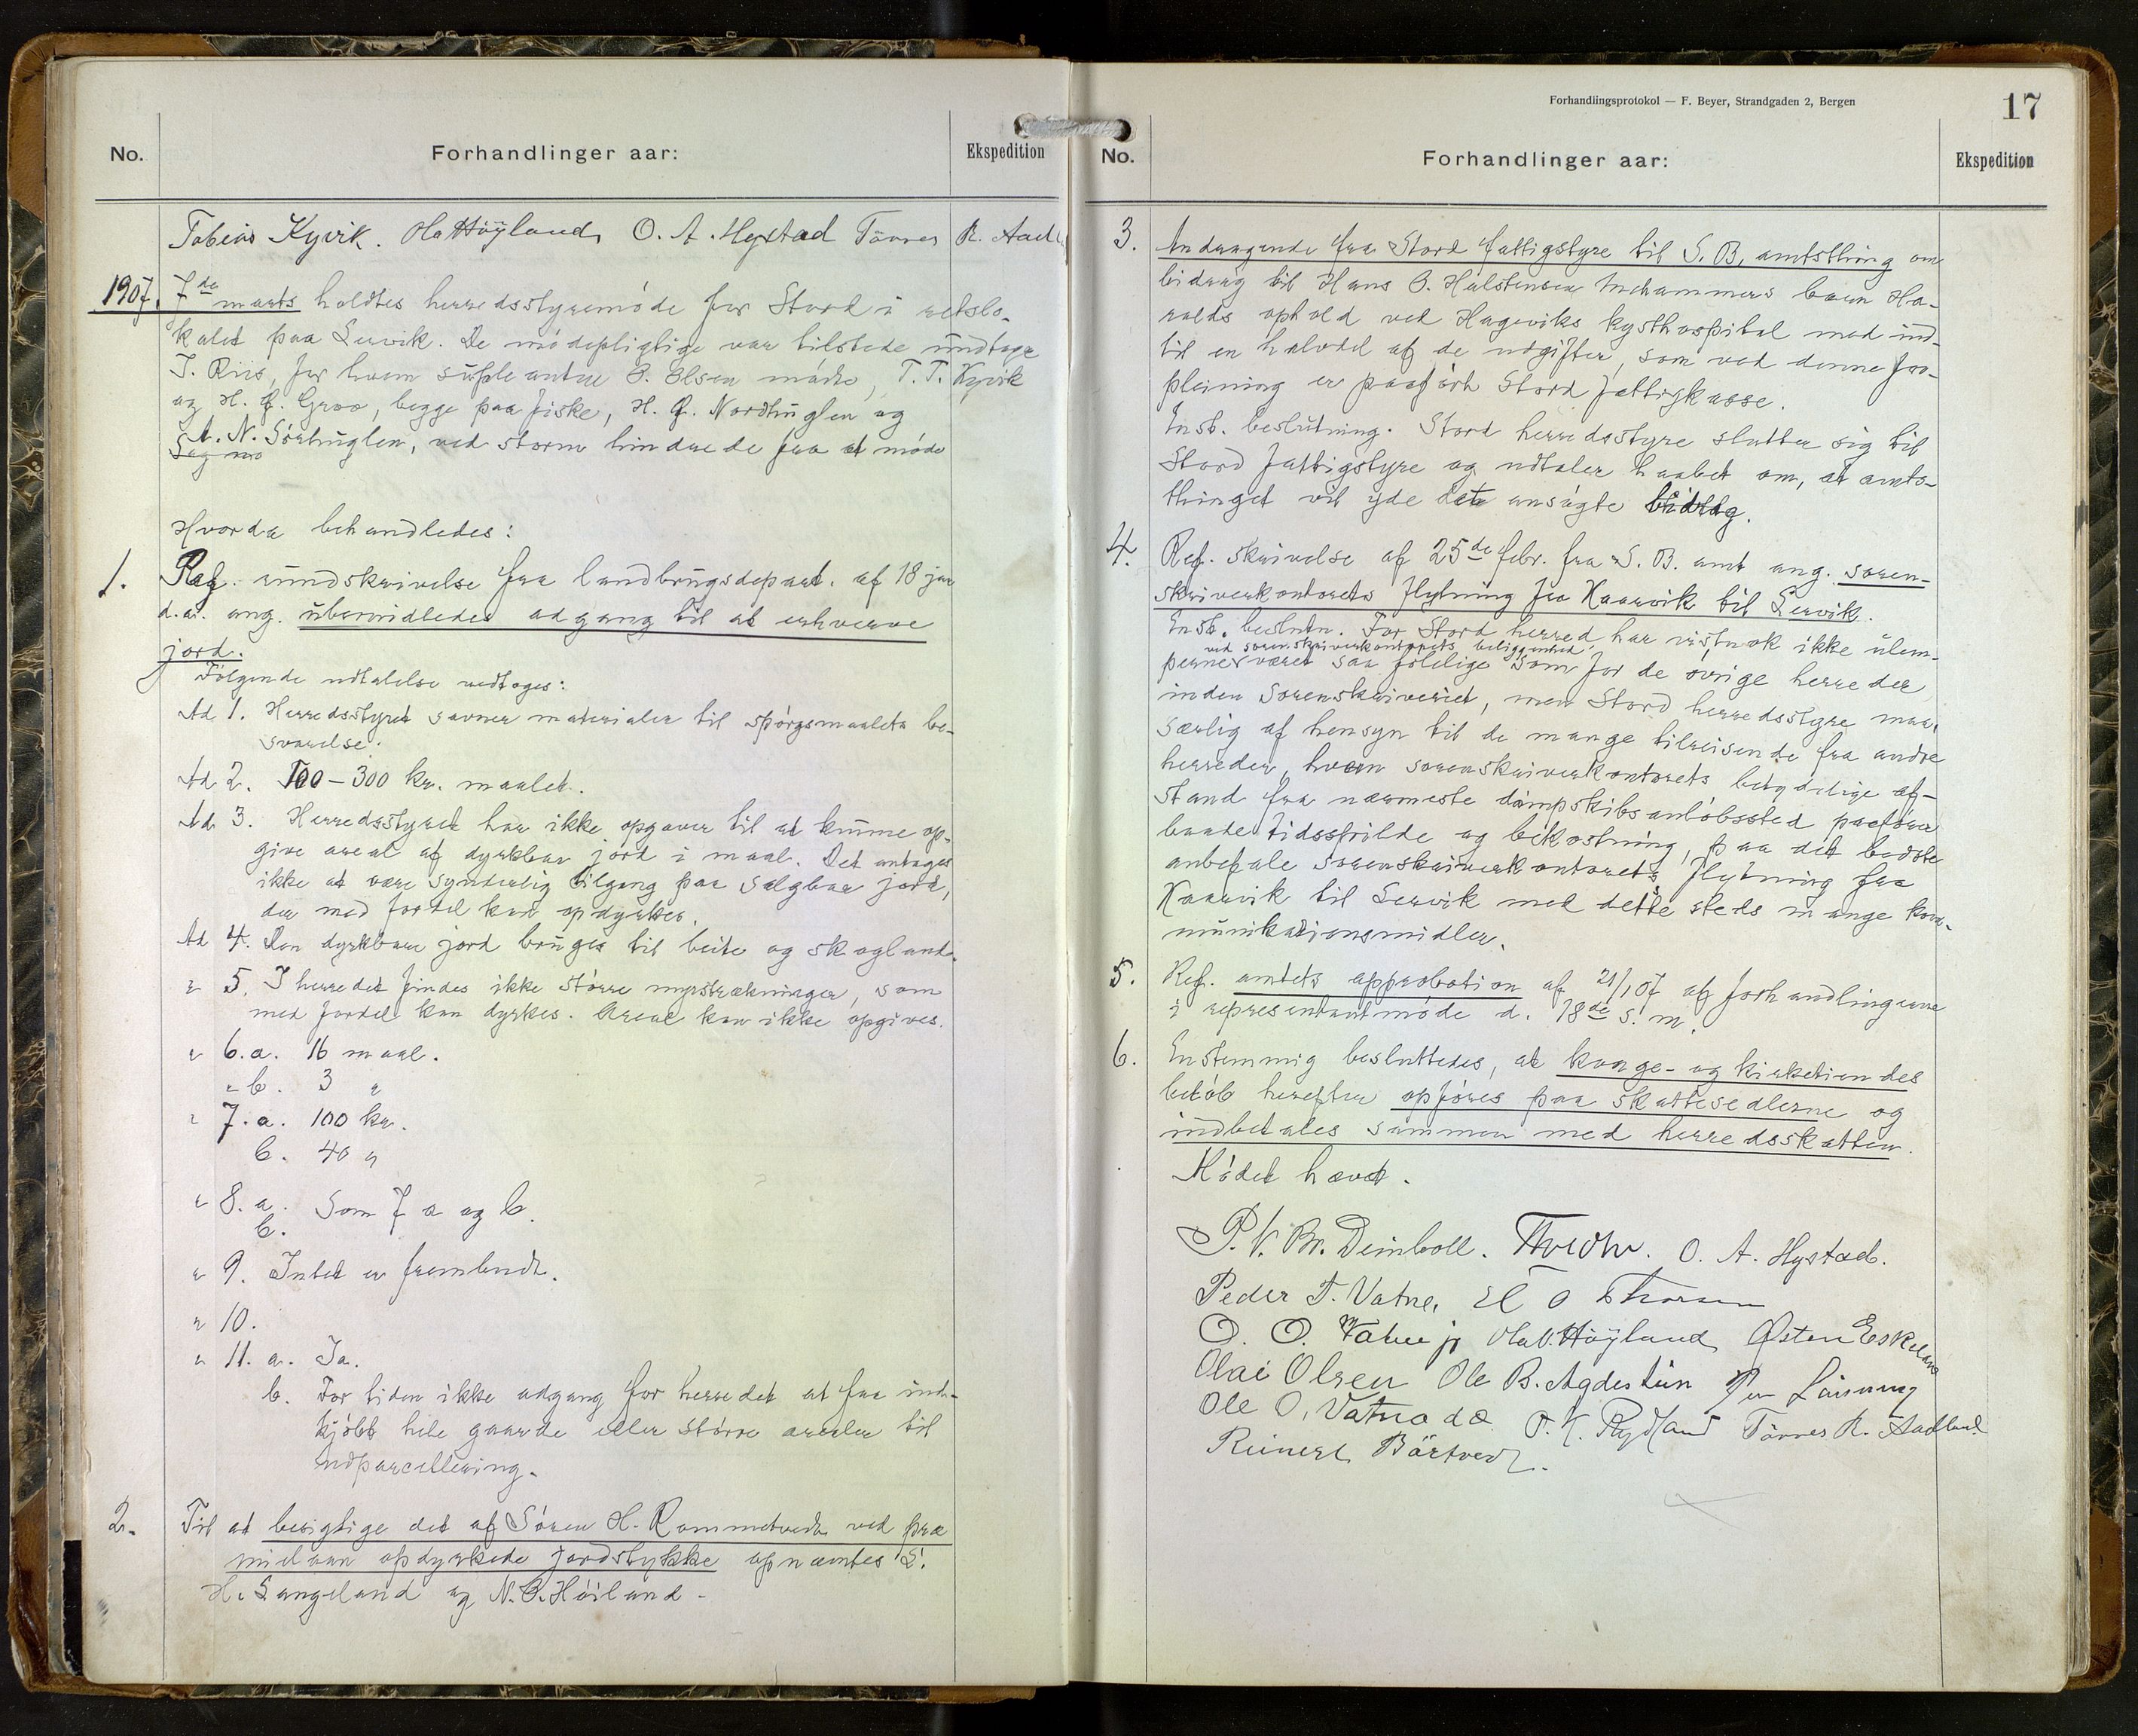 No.
Forhandlinger aar:
Ekspedition
Tobias Kyvik. Ola Høyland, O. A. Hystad Tönnes R. Aadl
1907. 7de marts holdtes herredsstyremöde for Stord i retslo-
kalet paa Lervik. De mödepligtige var tilstede undtage
J. Riis, for hvem supleanten O. Olsen mödte, T. T. Kyvik
og H. G. Groo, begge paa fiske, H. G. Nordhuglen og
A. N. Sörhuglen, ved storm hindrede fra at möde
Sag no
Hvorda behandledes:
1. Ref. rundskrivelse fra landbrugsdepart. af 18 jan
d.a. ang. ubemidledes adgang til at erhverve
jord.
Fölgende udtalelse vedtoges:
Ad 1. Herredsstyret savner materialer til spörgsmaalets be-
svarelse.
Ad 2. 100-300 kr. maalet.
Ad 3. Herredsstyret har ikke opgaver til at kunne op-
give areal af dyrkbar jord i maal. Det antages
ikke at være synderlig tilgang paa sælgbar jord,
der med fordel kan opdyrkes.
Ad 4. Den dyrkbare jord bruges til beite og skogland.
" 5. I herredet findes ikke större myrstrækninger, som
med fordel kan dyrkes. Areal kan ikke opgives.
" 6.a. 16 maal.
" b. 3 "
" 7.a. 100 kr.
b. 40 "
" 8.a. Som 7 a og b.
b.
" 9. Intet er fremlendt.
" 10.
" 11. a. Ja.
b. For tiden ikke adgang for herredet at faa ind-
kjöbt hele gaarde eller större arealer til
udparcellering.
2. Til at besigtige det af Sören H. Rommetvedt ved præ
mielaan opdyrkede jordstykke opnævntes L.
H. Langeland og N. O. Höiland.
Forhandlingsprotokol — F. Beyer, Strandgaden 2, Bergen
17
No.
Forhandlinger aar:
Ekspedition
3. Andragende fra Stord fattigstyre til S. B. amtsthing om
bidrag til Hans O. Halstensen Inchammers barn Ha-
ralds ophold ved Hageviks kysthospital med ind-
til en halvdel af de udgifter, som ved denne for-
pleining er paafört Stord fattigkasse.
Enst. beslutning. Stord herredsstyre slutter sig til
Stord fattigstyre og udtaler haabet om, at amts-
thinget vil yde dete ansögte bidrag.
4. Ref. skrivelse af 25de febr. fra S. B. amt ang. soren-
skriverkontorets flytning fra Kaarvik til Lervik.
Enst. beslutn. For Stord herred har vistnok ikke ulem-
ved sorenskriverkontorets beliggenhed
perne været saa fölelige som for de övrige herreder
inden sorenskriveriet, men Stord herredsstyre maa,
særlig af hensyn til de mange tilreisende fra andre
herreder, hvem sorenskriverkontorets betydelige af-
stand fra nærmeste dampskibsanlöbssted paaförer
baade tidsspilde og bekostning, paa det bedste
anbefale sorenskriverkontorets flytning fra
Kaarvik til Lervik med dette steds mange kom-
munikationsmidler.
5. Ref. amtets approbation af 21/1 07 af forhandlingerne
i representantmöde d. 18de s. m.
6. Enstemmig besluttedes, at konge- og kirketiendes
belöb herefter opföres paa skattesedlerne og
indbetales sammen med herredsskatten.
Mödet hævet.
P. V. Br. Deinboll. O. A. Hystad.
Peder T. Vatne, O Thorsen
O. O. Vatne jr Ola V. Høyland, Østen Eskeland
Olai Olsen Ole B. Agdestein Per Lönning
Ole O. Vatna dæ O. K. Rydland Tönnes R. Aadland
Reinert Börtvedt.